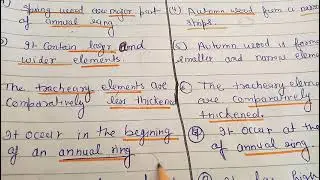 Spring wood are major part
of annual ring
It contain larger and
wider elements
The tracheary elements are
comparatively less thickened
It occur in the begining
of an annual ring
(4) Autumn wood form a narrow
stops.
(5) Autumn wood is formed
smaller and narrow elem
(6) The tracheary elem
are comparatively
thickened.
It occur at the
of annual ring.
It has high